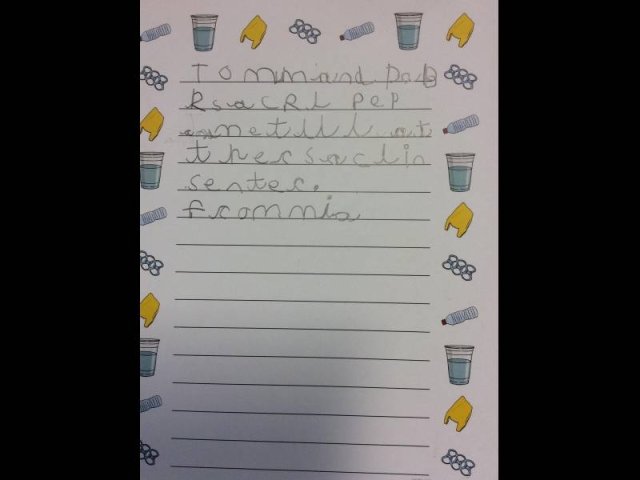 To mum and Dad
Rsacrl pep
metlll at
thersaclin
senter.
from mia